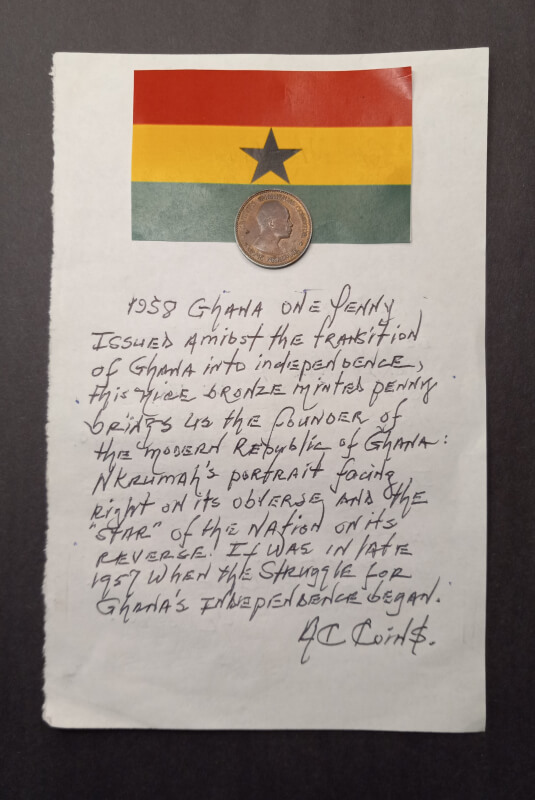 1958 Ghana one Penny
Issued amidst the transition
of Ghana into independence,
this nice bronze minted penny
brings us the founder of
the modern Republic of Ghana:
Nkrumah's portrait facing
right on its obverse and the
"star" of the Nation on its
reverse. It was in late
1957 when the struggle for
Ghana's Independence began.
AC Coin$.